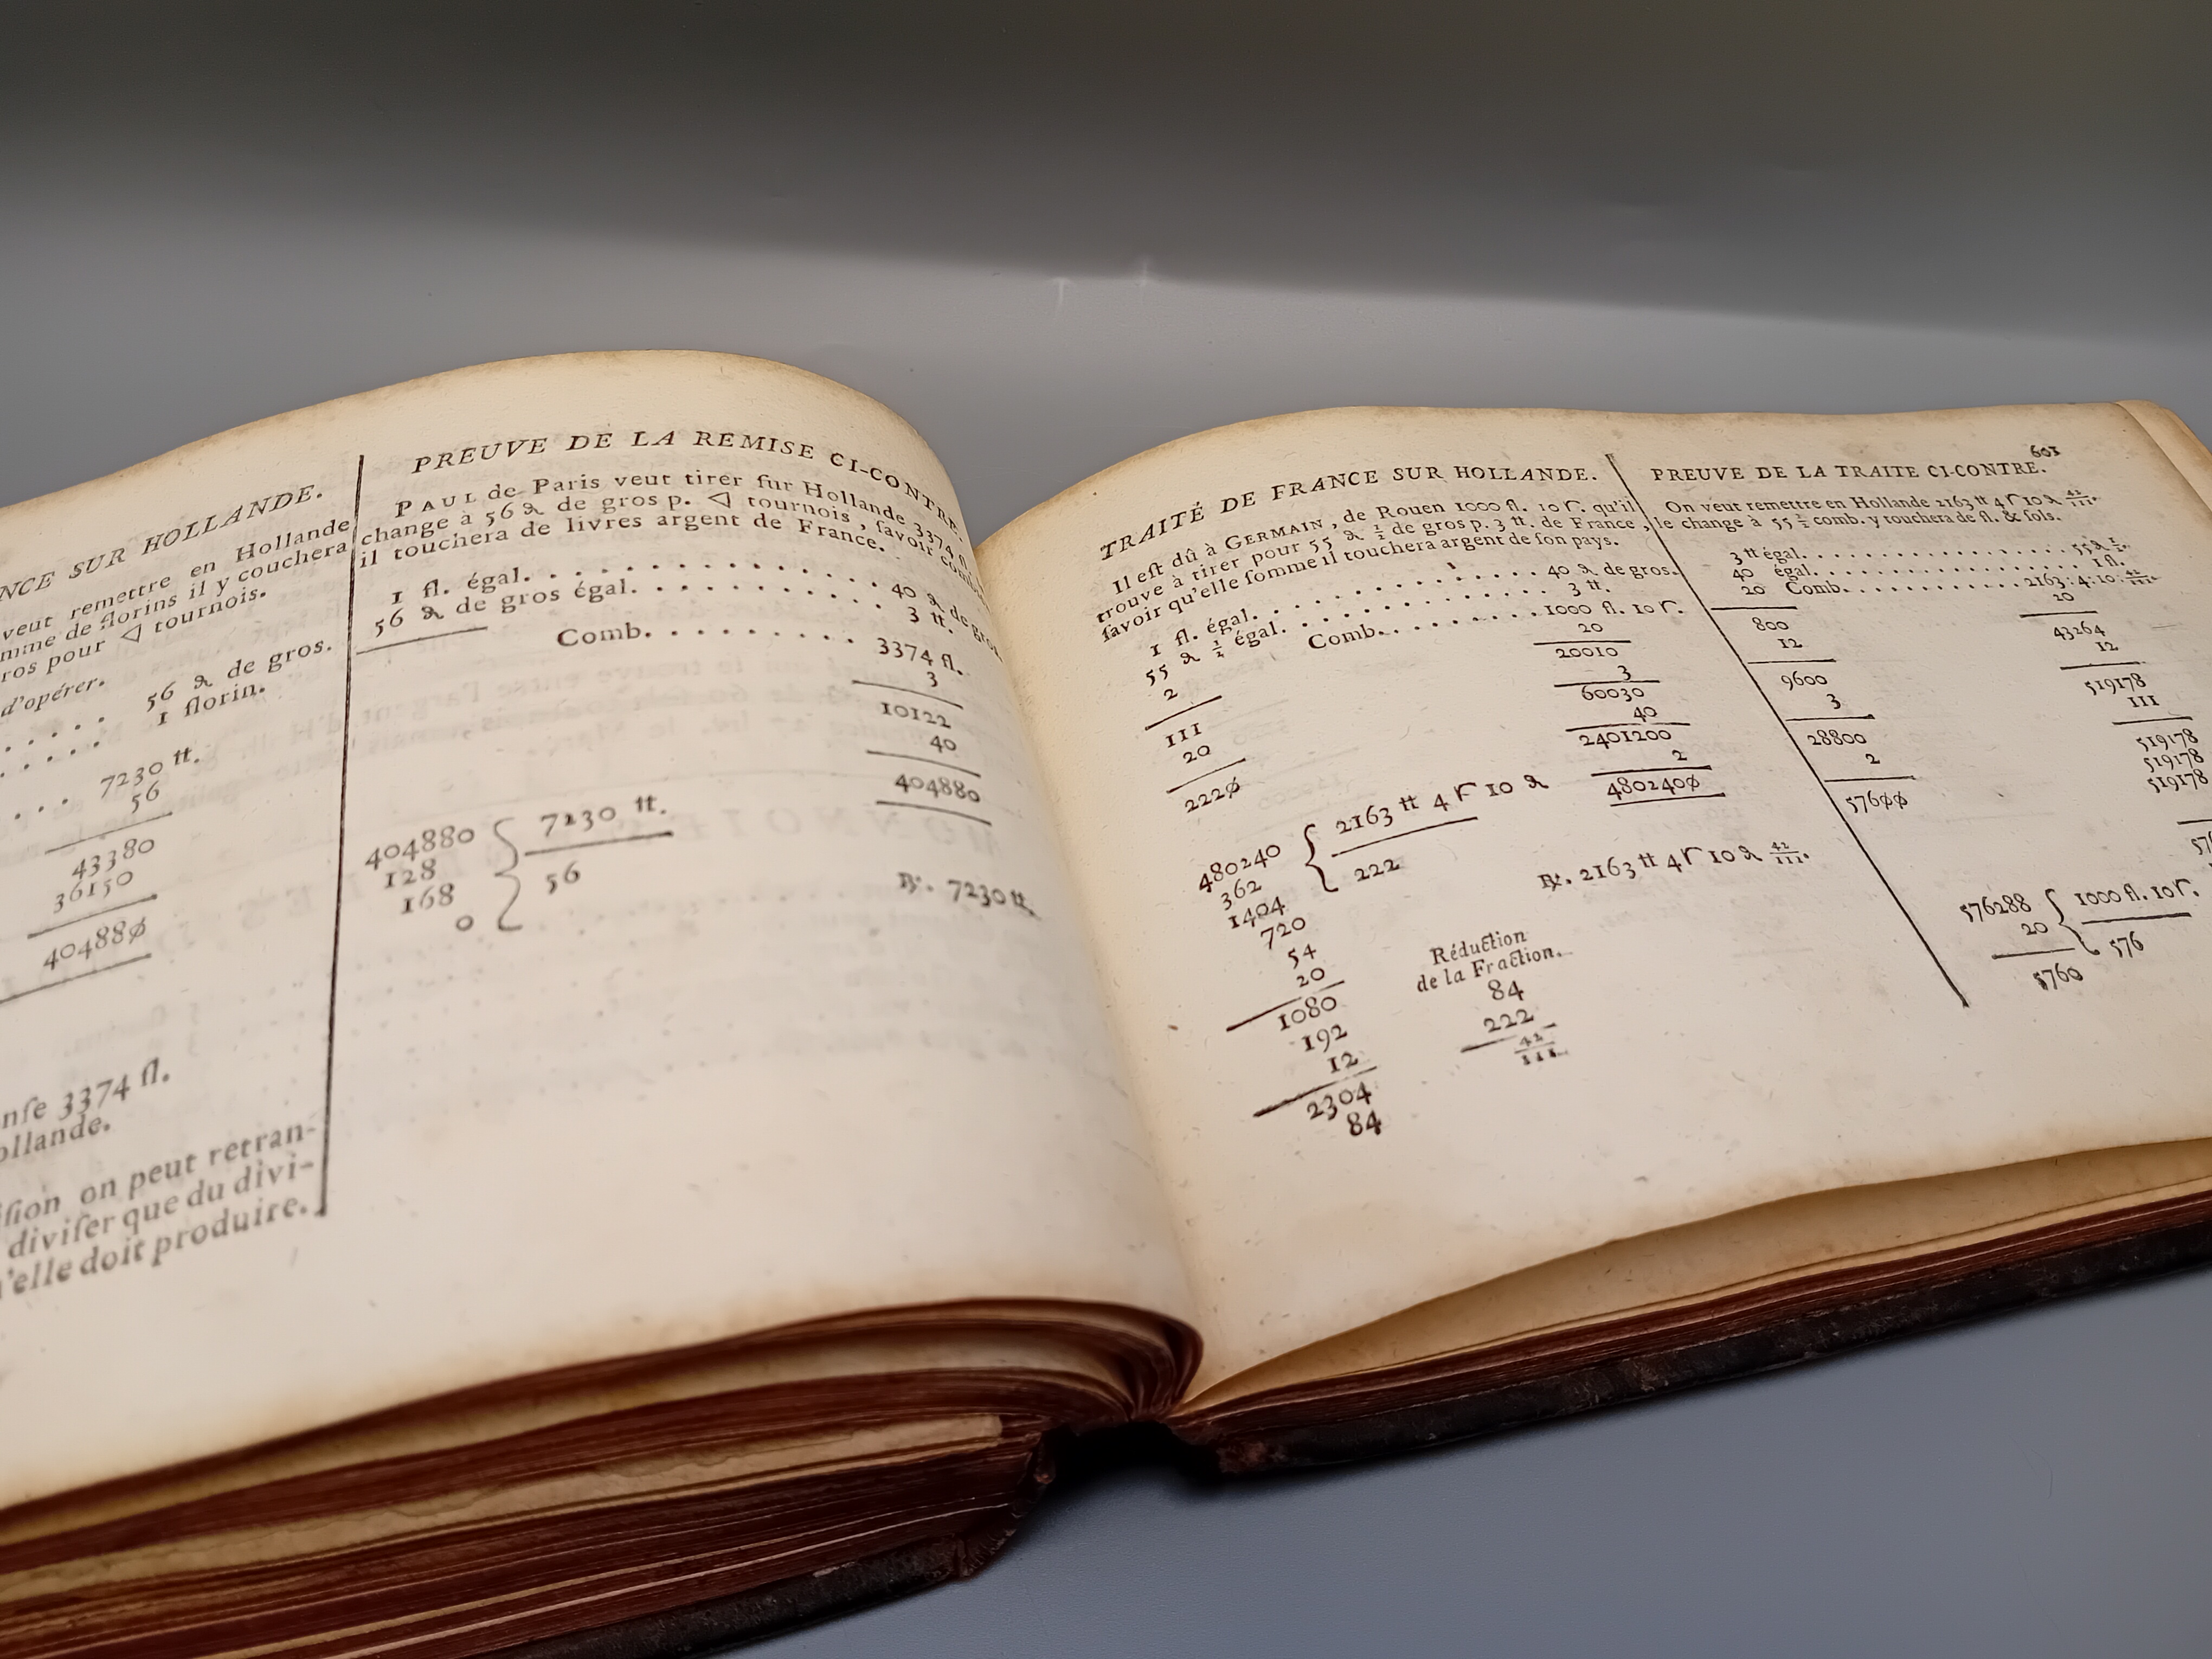 NCE SUR HOLLANDE.
veut remettre en Hollande
mme de florins il y couchera
ros pour ◁ tournois.
d'opérer.
56 ₰ de gros.
1 florin.
7230 tt.
56
43380
36150
404880
nſe 3374 fl.
ollande.
iſion on peut retran-
diviſer que du divi-
'elle doit produire.
PREUVE DE LA REMISE CI-CONTRE.
PAUL de Paris veut tirer ſur Hollande 3374 fl.
change à 56 ₰ de gros p. ◁ tournois, ſavoir comb
il touchera de livres argent de France.
1 fl. égal. . . . . . . . . . . . . . . . 40 ₰ de gros.
56 ₰ de gros égal. . . . . . . . . . . . 3 tt.
Comb. . . . . . . . . 3374 fl.
3
10122
40
404880
404880 { 7230 tt.
128
168 56
0
℞. 7230 tt.
TRAITÉ DE FRANCE SUR HOLLANDE.
Il eſt dû à GERMAIN, de Rouen 1000 fl. 10 ſ. qu'il
trouve à tirer pour 55 ₰ 1/2 de gros p. 3 tt. de France,
ſavoir qu'elle ſomme il touchera argent de ſon pays.
1 fl. égal. . . . . . . . . . . . . . . . 40 ₰ de gros.
55 ₰ 1/2 égal. . . . . . . . . . . . . . 3 tt.
2 Comb. . . . . . . . . . 1000 fl. 10 ſ.
20
111 20010
20 3
2220 60030
40
2401200
2
4802400
480240 { 2163 tt 4 ſ 10 ₰
362 222
1404
720
54
20
1080
192
12
2304
84
℞. 2163 tt 4 ſ 10 ₰ 42/111.
Réduction
de la Fraction.
84
222
42
111
601
PREUVE DE LA TRAITE CI-CONTRE.
On veut remettre en Hollande 2163 tt 4 ſ 10 ₰ 42/111.
le change à 55 1/2 comb. y touchera de fl. & ſols.
3 tt égal. . . . . . . . . . . . . . . . 55 ₰ 1/2.
40 égal. . . . . . . . . . . . . . . . . 1 fl.
20 Comb. . . . . . . . . . . . 2163:4:10:42/111
20
800 43264
12 12
9600 519178
3 111
28800 519178
2 519178
57600 519178
576288 { 1000 fl. 10 ſ.
20 576
5760